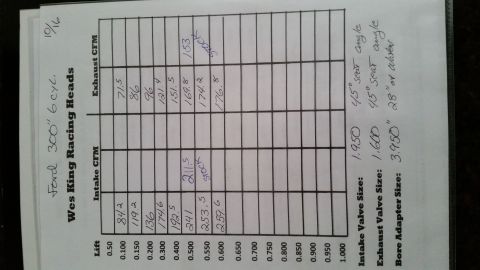 10/16
Ford 300" 6 cyl.
Wes King Racing Heads
Lift Intake CFM Exhaust CFM
0.50
0.100 84.2 71.5
0.150 119.2 86
0.200 136 96
0.300 174.6 121.4
0.400 192.5 151.5
0.500 241 211.5 169.8 153
0.550 253.5 stock 174.2 stock
0.600 259.6 176.8
0.650
0.700
0.750
0.800
0.850
0.900
0.950
1.000
Intake Valve Size: 1.950 45° seat angle
Exhaust Valve Size: 1.600 45° seat angle
Bore Adapter Size: 3.950" 28" of water